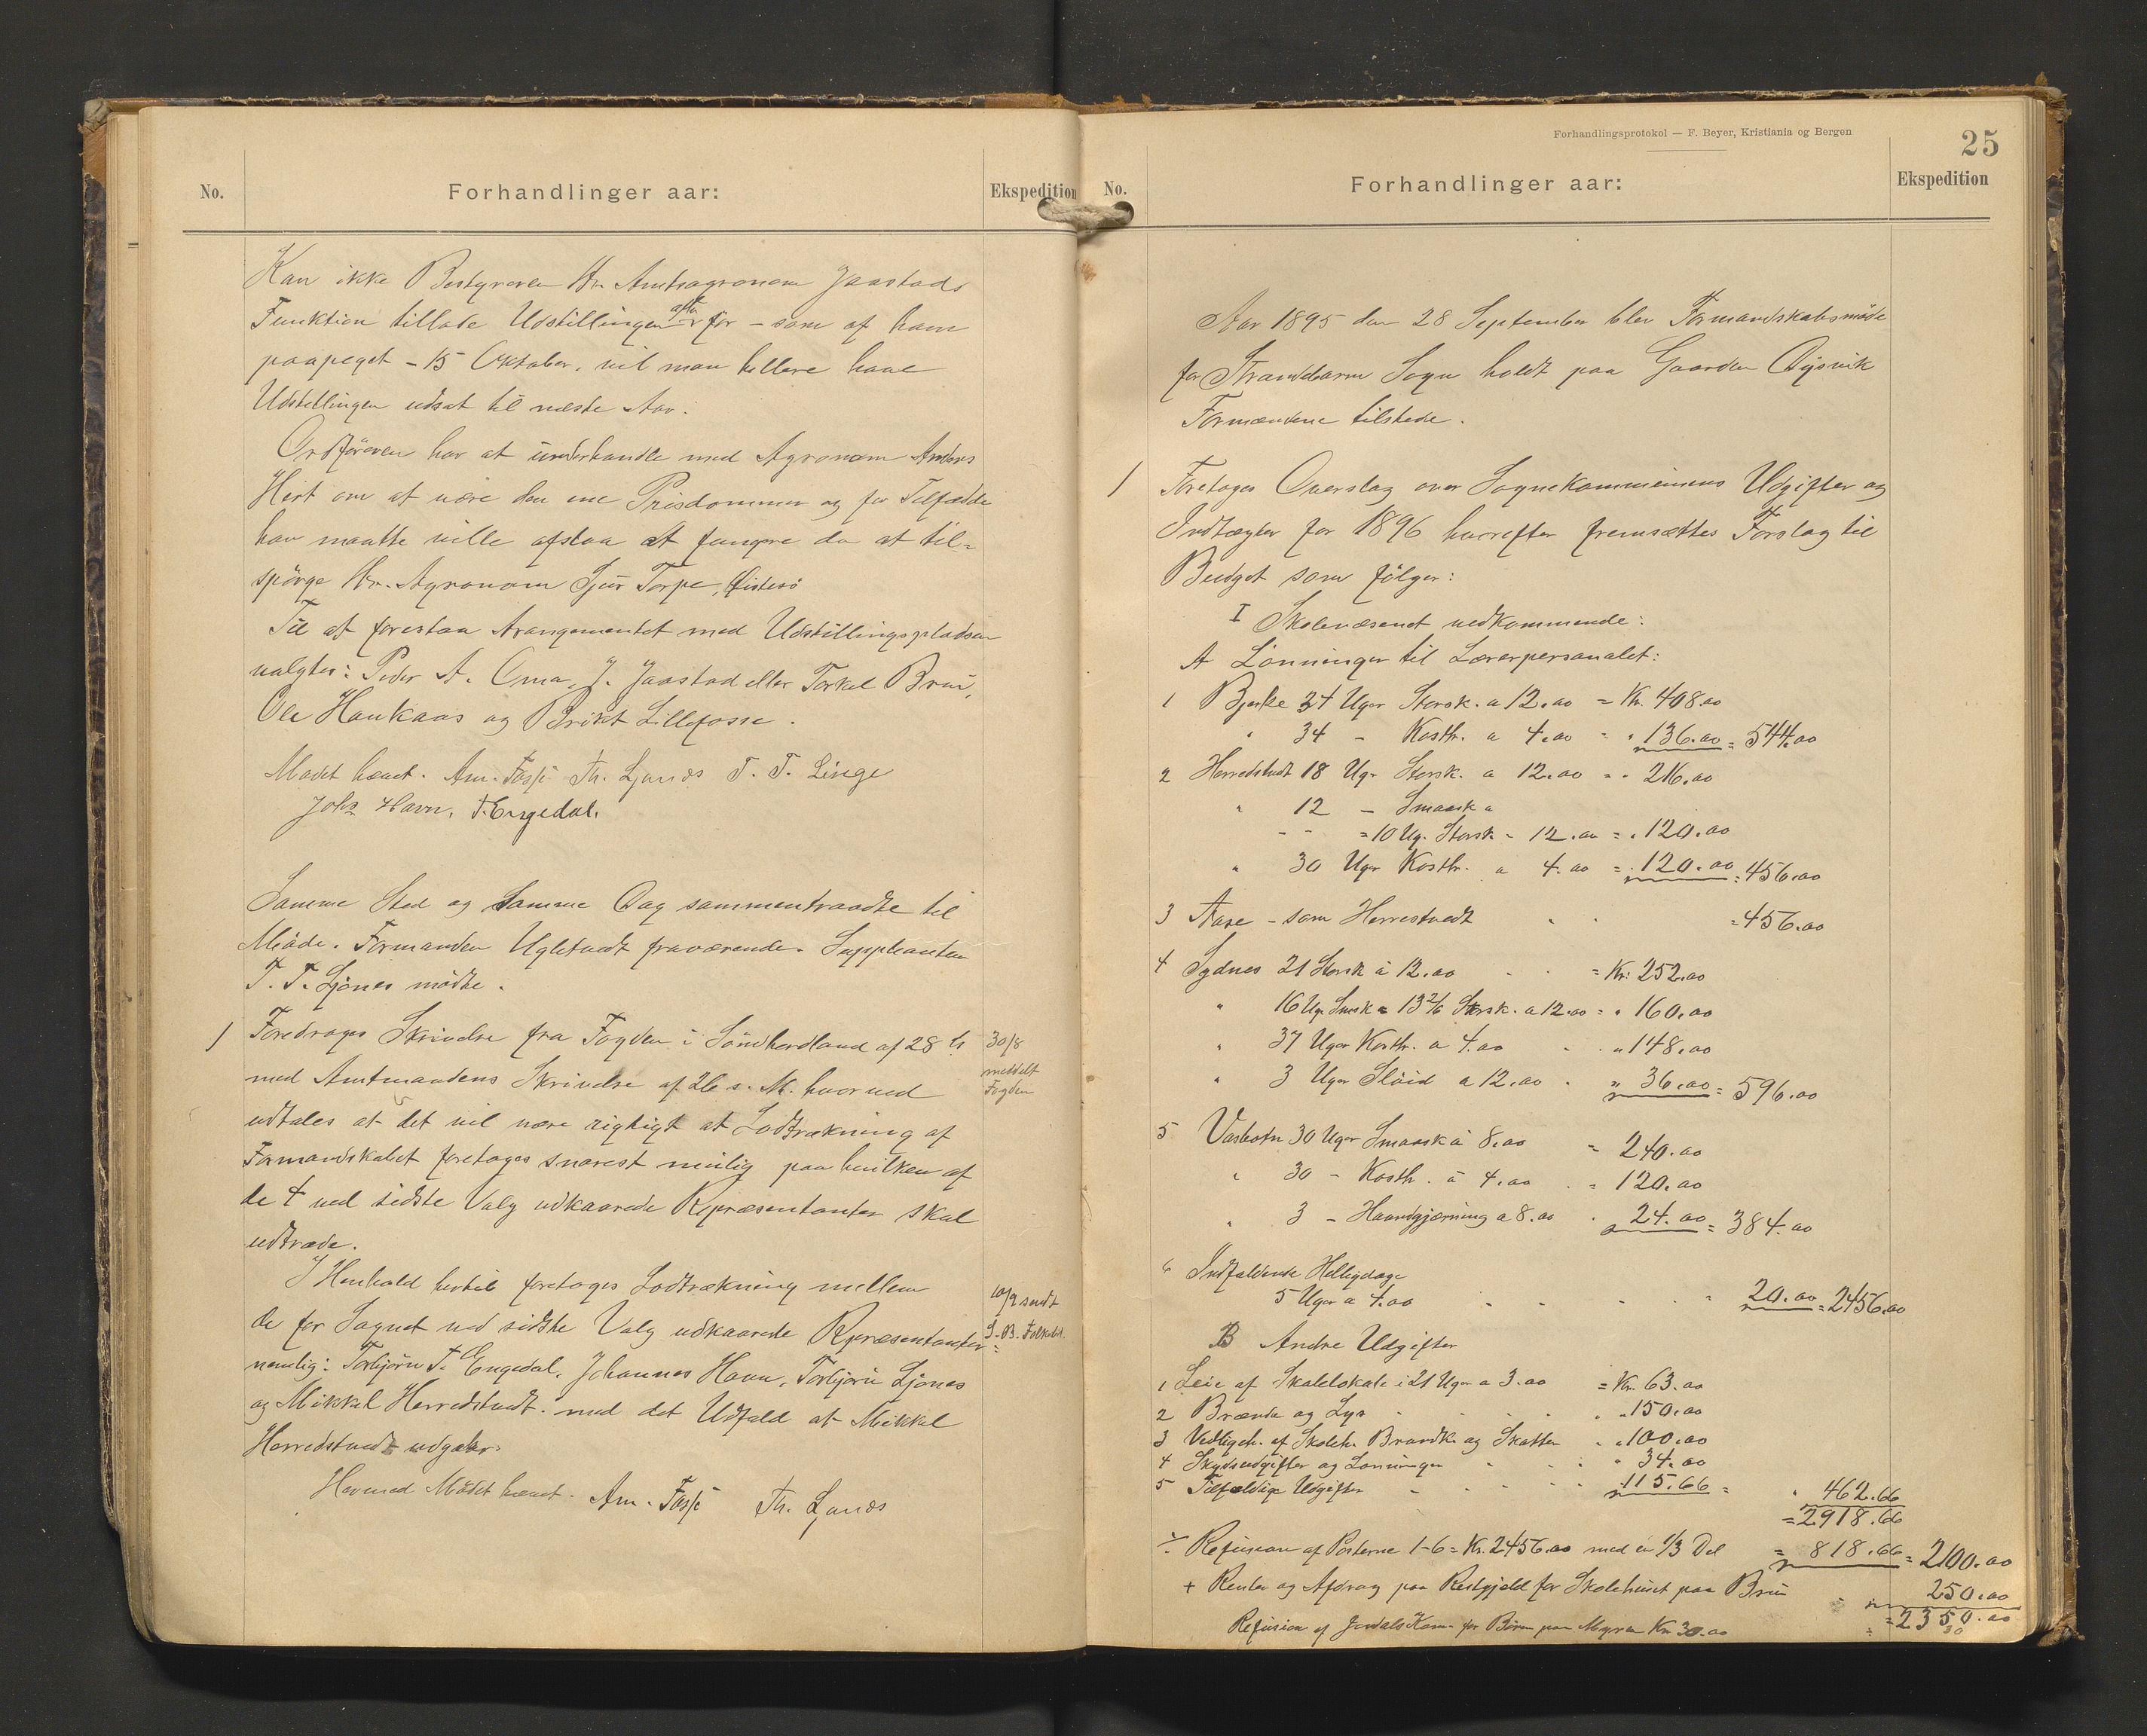 No.
Forhandlinger aar:
Ekspedition
Kan ikke Bestyreren Hr. Amtsagronom Jaastads
Funktion tillade Udstillingen afh. før – som af ham
paapeget – 15 Oktober, vil man hellere have
Udstillingen udsat til næste Aar.
Ordføreren har at underhandle med Agronom Anders
Hert om at være den ene Prisdommer og for Tilfælde
han maatte ville afslaa at fungere da at til=
spörge Hr. Agronom Sjur Torpe,
Til at forestaa Arangementet med Udstillingspladsen
valgtes: Peder A. Oma, J. Jaastad eller Torkel Bru,
Ole Haukaas og Brikt Lillefosse.
Mødet hævet. Am. Fosse Th. Ljones T. T. Linge
Johs Havn. T. Engedal.
Samme Sted og Samme Dag sammentraadte til
Møde. Formanden Ugletvedt fraværende. Suppleanten
T. T. Ljønes mødte.
1 Foredroges Skrivelse fra Fogden i Söndhordland af 28 ds
30/8
meddelt
Fogden
med Amtmandens Skrivelse af 26 s. M. hvorved
udtales at det vil være rigtigt at Lodtrækning af
Formandskabet foretages snarest mulig paa hvilken af
de 4 ved sidste Valg udkaarede Repræsentanter skal
udtræde.
I Henhold hertil foretoges Lodtrækning mellem
10/9 sendt
S. B. Folkebl.
de for Sognet ved sidste Valg udkaarede Repræsentanter
nemlig: Torbjörn T. Engedal, Johannes Havn, Torbjörn Ljones
og Mikkel Herredstvedt. med det Udfald at Mikkel
Herredstvedt udgaar.
Hermed Mödet hævet. Am. Fosse Th. Ljones
Forhandlingsprotokol — F. Beyer, Kristiania og Bergen
25
No.
Forhandlinger aar:
Ekspedition
Aar 1895 den 28 September blev Formandskabsmöde
for Strandebarm Sogn holdt paa Gaarden Digsvik
Formændene tilstede.
1 Foretoges Overslag over Sognekommunens Udgifter og
Indtægter for 1896 hvorefter fremsættes Forslag til
Budget som fölger:
I Skolevæsenet vedkommende:
A Lönninger til Lærerpersonalet:
1 Bjerke 34 Uger Storsk. a 12.00 = Kr. 408.00
" 34 – Kosth. a 4.00 = " 136.00 = 544.00
2 Herredstvedt 18 Uger Storsk. a 12.00 = " 216.00
" 12 – Smaask a
- - = 10 Ug. Storsk. a 12.00 = " 120.00
" 30 Uger Kosth. a 4.00 = " 120.00 = 456.00
3 Aase – som Herrestvedt " " = 456.00
4 Sydnes 21 Storsk à 12.00 = Kr: 252.00
" 16 Ug. Smsk = 13 2/6 Storsk. a 12.00 = " 160.00
" 37 Uger Kosth. a 4.00 " 148.00
" 3 Uger Slöid a 12.00 " 36.00 = 596.00
5 Vasbotn 30 Uger Smaask à 8.00 = 240.00
" 30 – Kosth. à 4.00 = 120.00
" 3 – Haandgjærning a 8.00 24.00 = 384.00
6 Indfaldende Helligdage
5 Uger a 4.00 " 20.00 = 2456.00
B Andre Udgifter
1 Leie af Skolelokale i 21 Uger a 3.00 = Kr. 63.00
2 Brænde og Lys " 150.00
3 Vedligeh. af Skoleh. Brandk. og Skatter " 100.00
4 Skydsudgifter og Lønninger " 34.00
5 Tilfældige Udgifter 115.66 = " 462.66
= 2918.66
÷ Refusion af Posterne 1-6 = Kr. 2456.00 med en 1/3 Del = 818.66 = 2100.00
+ Renter og Afdrag paa Restgjæld for Skolehuset paa Bru 250.00
= 2350.00
Refusion af Jondals Kom. for Börn paa Myren Kr 30.00
30